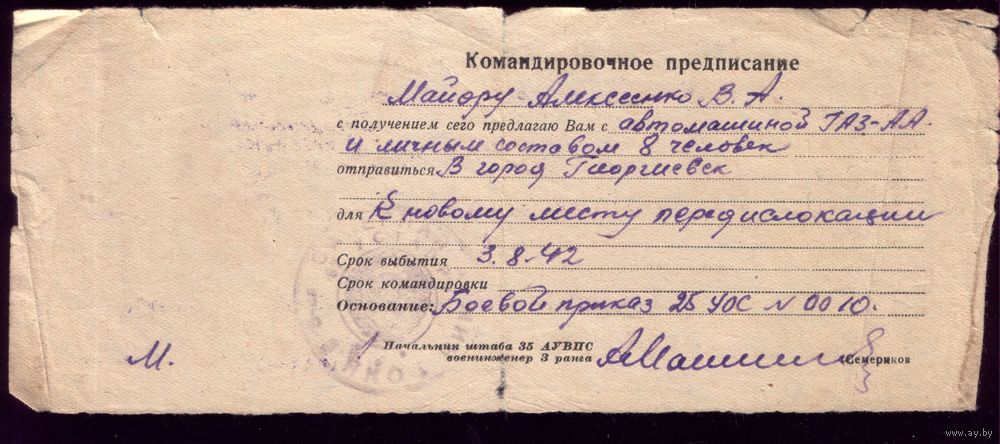 Командировочное предписание
Майору Алексеенко В. А.
с получением сего предлагаю Вам с автомашиной ГАЗ-АА
и личным составом 8 человек
отправиться В город Георгиевск
для К новому месту передислокации
Срок выбытия 3.8.42
Срок командировки
Основание: Боевой приказ 25 УОС N 0010.
Начальник штаба 35 АУВПС
военинженер 3 ранга
Семериков
М.
www.ay.by